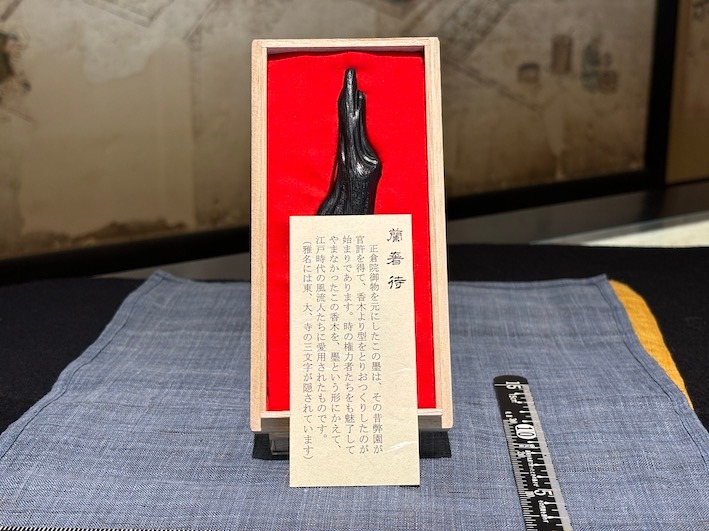 蘭奢待
正倉院御物を元にしたこの墨は、その昔弊園が
官許を得て、香木より型をとりおつくりしたのが
始まりであります。時の権力者たちをも魅了して
やまなかったこの香木を、墨という形にかえて、
江戸時代の風流人たちに愛用されたものです。
（雅名には東、大、寺の三文字が隠されています）
15
10
5